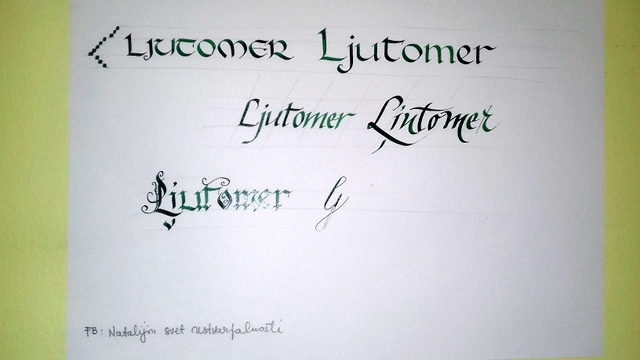 LJUTOMER Ljutomer
Ljutomer Ljutomer
Ljutomer Lj
FB: Natalijin svet ustvarjalnosti